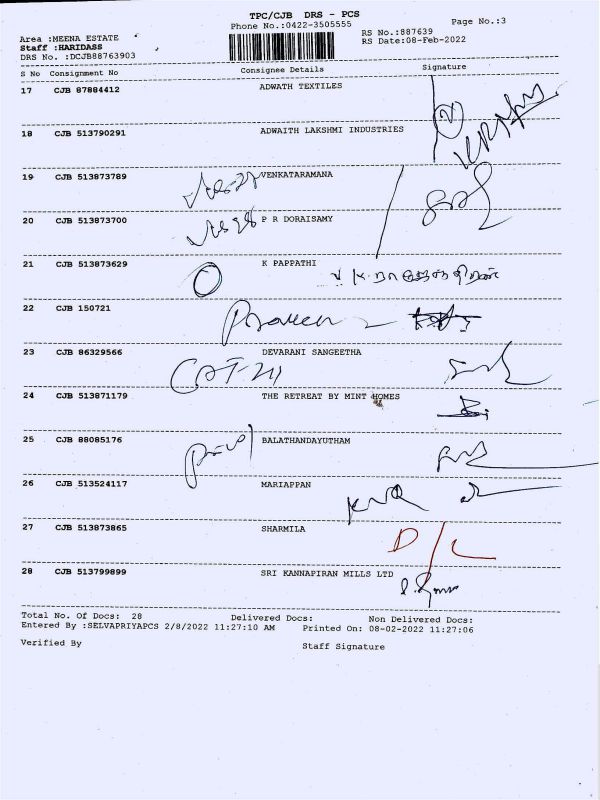 TPC/CJB DRS - PCS
Phone No.:0422-3505555
Page No.:3
Area :MEENA ESTATE
Staff :HARIDASS
DRS No. :DCJB88763903
RS No.:887639
RS Date:08-Feb-2022
S No Consignment No Consignee Details Signature
17 CJB 87884412 ADWATH TEXTILES
18 CJB 513790291 ADWAITH LAKSHMI INDUSTRIES
19 CJB 513873789 VENKATARAMANA
20 CJB 513873700 P R DORAISAMY
21 CJB 513873629 K PAPPATHI
22 CJB 150721 Praveen
23 CJB 86329566 DEVARANI SANGEETHA
24 CJB 513871179 THE RETREAT BY MINT HOMES
25 CJB 88085176 BALATHANDAYUTHAM
26 CJB 513524117 MARIAPPAN
27 CJB 513873865 SHARMILA D/L
28 CJB 513799899 SRI KANNAPIRAN MILLS LTD
Total No. Of Docs: 28 Delivered Docs: Non Delivered Docs:
Entered By :SELVAPRIYAPCS 2/8/2022 11:27:10 AM Printed On: 08-02-2022 11:27:06
Verified By Staff Signature